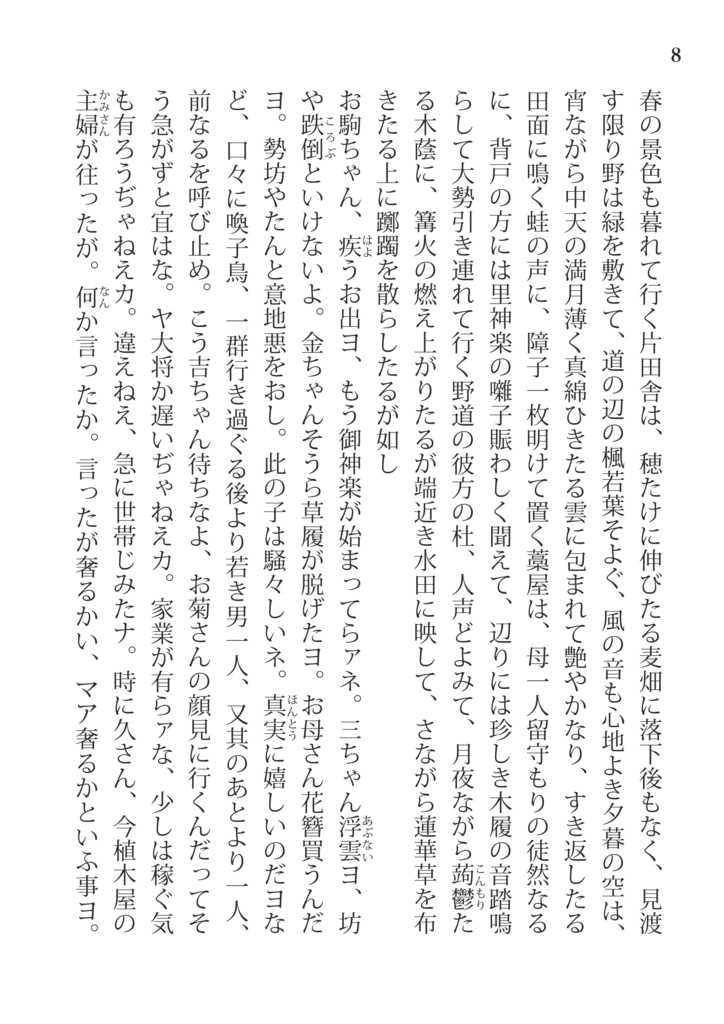 8
春の景色も暮れて行く片田舎は、穂たけに伸びたる麦畑に落下後もなく、見渡
す限り野は緑を敷きて、道の辺の楓若葉そよぐ、風の音も心地よき夕暮の空は、
宵ながら中天の満月薄く真綿ひきたる雲に包まれて艶やかなり、すき返したる
田面に鳴く蛙の声に、障子一枚明けて置く藁屋は、母一人留守もりの徒然なる
に、背戸の方には里神楽の囃子賑わしく聞えて、辺りには珍しき木履の音踏鳴
らして大勢引き連れて行く野道の彼方の杜、人声どよみて、月夜ながら蒟鬱こんもりた
る木蔭に、篝火の燃え上がりたるが端近き水田に映して、さながら蓮華草を布
きたる上に躑躅を散らしたるが如し
お駒ちゃん、疾はようお出ヨ、もう御神楽が始まってらァネ。三ちゃん浮雲あぶないヨ、坊
や跌倒ころぶといけないよ。金ちゃんそうら草履が脱げたヨ。お母さん花簪買うんだ
ヨ。勢坊やたんと意地悪をおし。此の子は騒々しいネ。真実ほんとうに嬉しいのだヨな
ど、口々に喚子鳥、一群行き過ぐる後より若き男一人、又其のあとより一人、
前なるを呼び止め。こう吉ちゃん待ちなよ、お菊さんの顔見に行くんだってそ
う急がずと宜はな。ヤ大将か遅いぢゃねえカ。家業が有らァな、少しは稼ぐ気
も有ろうぢゃねえカ。違えねえ、急に世帯じみたナ。時に久さん、今植木屋の
主婦かみさんが往ったが。何なんか言ったか。言ったが奢るかい、マア奢るかといふ事ヨ。